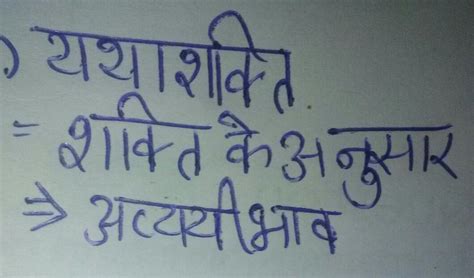 ) यथाशक्ति
= शक्ति के अनुसार
⇒ अव्ययीभाव